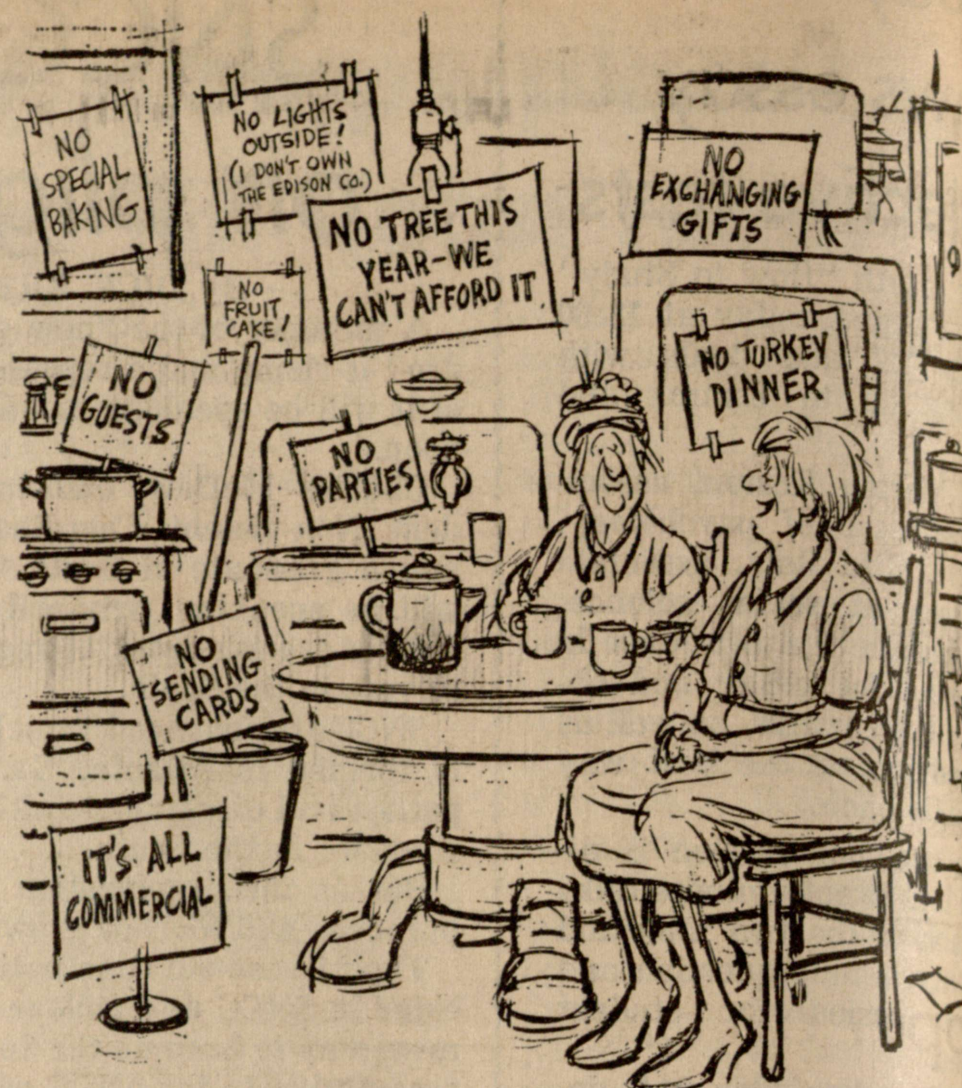 NO
SPECIAL
BAKING
NO LIGHTS
OUTSIDE!
(I DON'T OWN
THE EDISON CO.)
NO TREE THIS
YEAR-WE
CAN'T AFFORD IT
NO
EXCHANGING
GIFTS
NO
FRUIT
CAKE!
NO TURKEY
DINNER
NO
GUESTS
NO
PARTIES
NO
SENDING
CARDS
IT'S ALL
COMMERCIAL